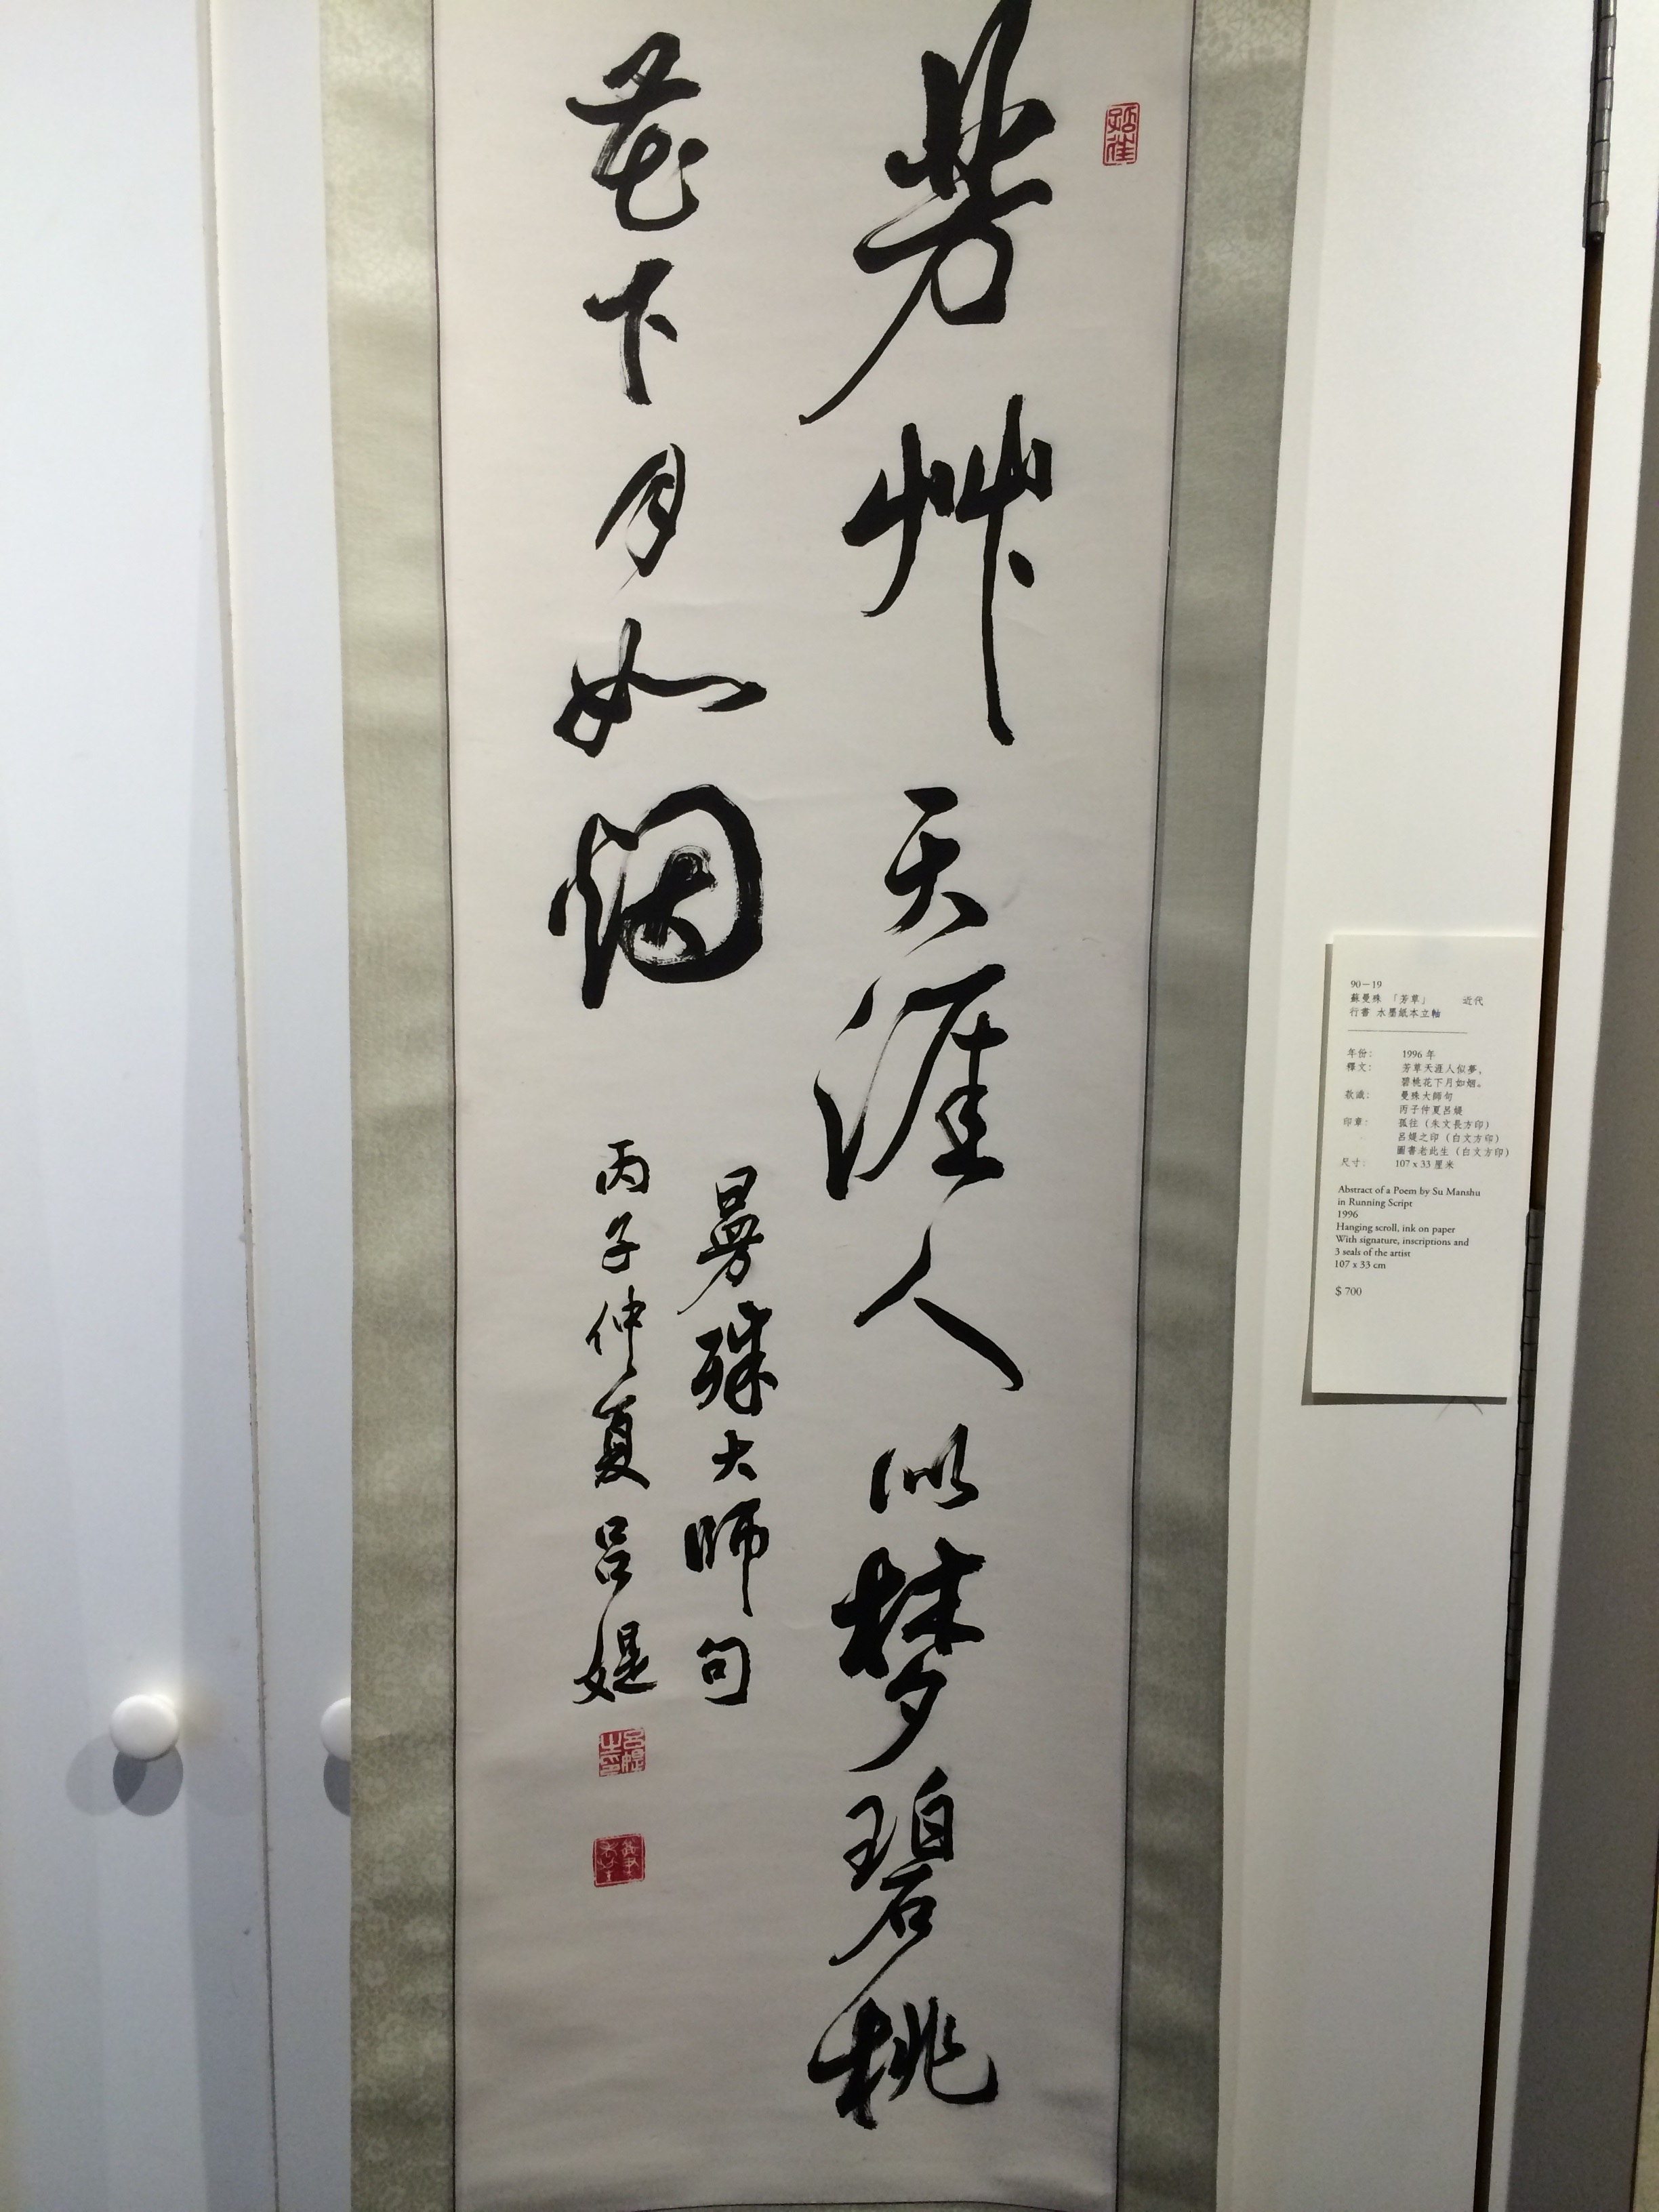 芳草天涯人似夢碧桃
花下月如烟
曼殊大師句
丙子仲夏呂媞
90－19
蘇曼殊 「芳草」 近代
行書 水墨紙本立軸
年份： 1996 年
釋文： 芳草天涯人似夢，
碧桃花下月如烟。
曼殊大師句
敬識： 丙子仲夏呂媞
印章： 孤往（朱文長方印）
呂媞之印（白文方印）
圖書老此生（白文方印）
尺寸： 107 x 33 厘米
Abstract of a Poem by Su Manshu
in Running Script
1996
Hanging scroll, ink on paper
With signature, inscriptions and
3 seals of the artist
107 x 33 cm
$ 700